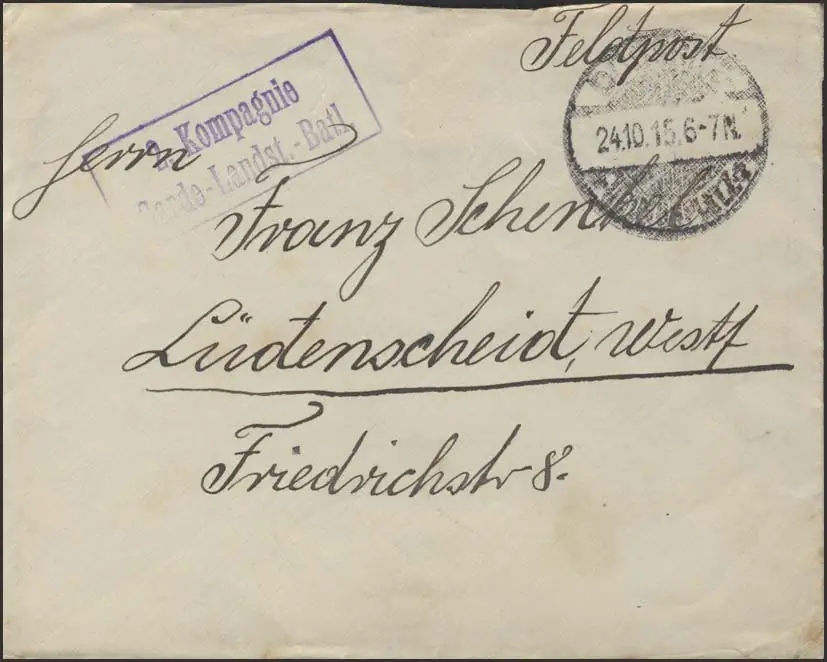 Feldpost
2. Kompagnie
Garde-Landst.-Batl.
24.10.15.6-7N.
Herrn
Franz Schenkel
Lüdenscheid, Westf
Friedrichstr 8.